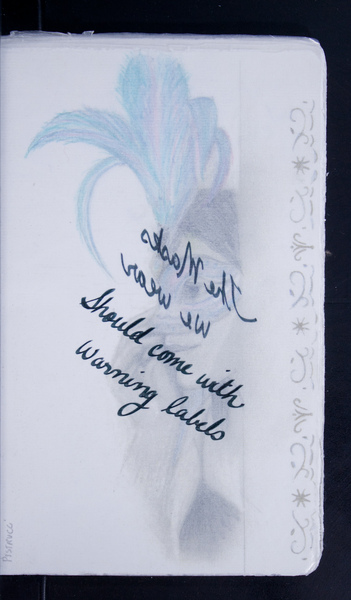 The Masks
we wear
Should come with
Warning labels